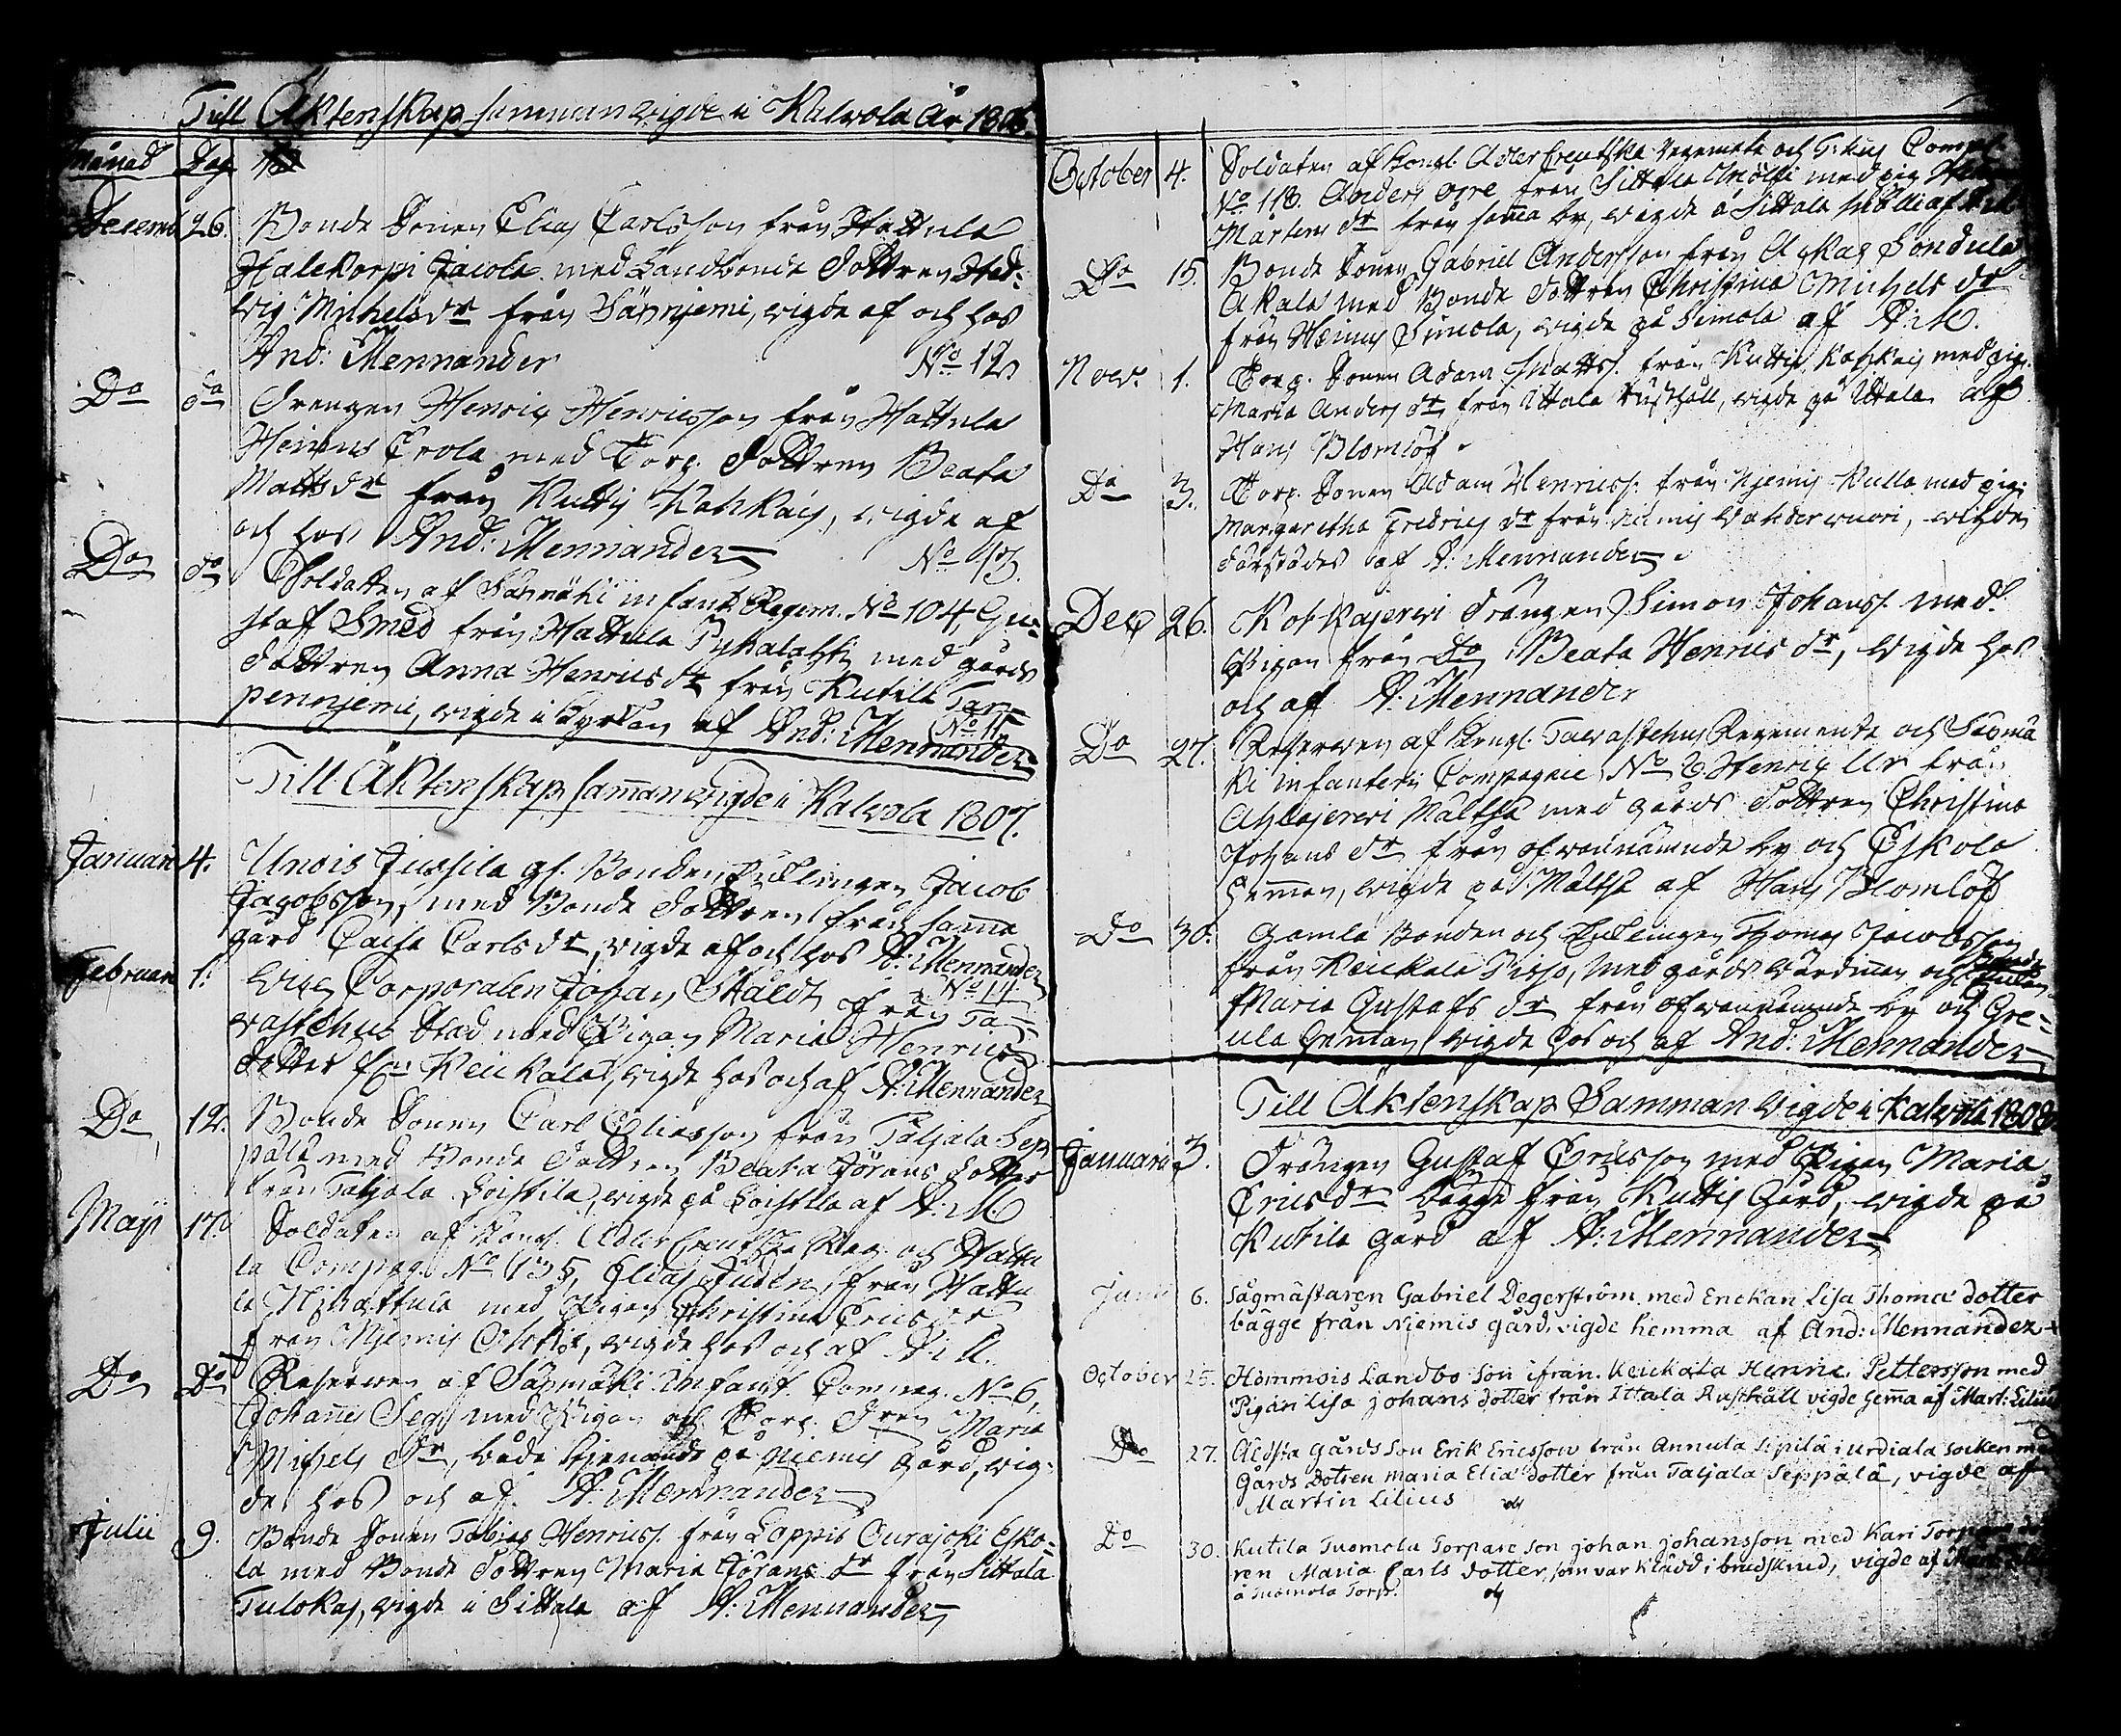 Till Äktenskap sammanvigde i Kalvola År 1806.
Månad Dag
Decemb 26. Bonde Sonen Elias Carlsson från Hattula
Halekorpi Jacola med Landbonde Dottren Hed-
vig Michelsdr från Särnjemi, vigde af och hos
And: Mennander No 12
Do do Drengen Henric Henricsson från Hattula
Heinus Erola med Torp. Dottren Beata
Mattsdr från Kuttis Kahkais, vigde af
och hos And: Mennander No 13.
Do do Soldaten af Säxmäki infant. Regem. No 104, Gu-
staf Smed från Hattula med gårds
Dottren Anna Henricsdr från Kutila Tan-
penjemi, vigde i Kyrkan af And: Mennander
Till Äktenskap sammanvigde i Kalvola 1807.
Januari 4. Unois Jussila gl. Bonden Enklingen Jacob
Jacobsson, med Bonde Dottren från samma
gård Caisa Carlsdr, vigde af och hos A: Mennander
Februari 1. Vice Corporalen Johan Ståldt från Ta-
vastehus Stad med Pigan Maria Henrics
dotter från Keickala, vigde hos och af A: Mennander
Do 12. Bonde Sonen Carl Eliasson från Taljala Sep
pälä med Bonde Dottren Beata Jörans dotter
från Taljala Loistila, vigde på Loistila af A: M
Maji 17. Soldaten af Kongl. Adler Creutzka Reg. och Hattu
la Compag. No 135, Elias Juden, från Hattu
la med Pigan Christina Ericsdr
från Njemis, vigde hos och af A: M.
Do Do Reserven af Säxmäki Infant. Compag. No 6,
Johannes Seg, med Pigan och Torp. Dren Maria
Michels dr, både tjenande på Niemis Gård, vig-
de hos och af A: Mennander
Julii 9. Bonde Sonen Tobias Henricss. från Loppis Ourajoki Esko-
la med Bonde Dottren Maria Jörans dr från Sittala
Tulokas, vigde i Sittala af A: Mennander
October 4. Soldaten af Kongl. Adler Creutzka Regemente och Compag.
No 118. Anders från Sittala med pig.
Martens dr från samma by, vigde å Sittala af
Do 15. Bonde Sonen Gabriel Andersson från Akas Sondula
Akala med Bonde Dottren Christina Michels dr
från Heinus Simola, vigde på Simola af A: M.
Nov. 1. Torp. Sonen Adam Mattss. från Kuttis Kahkais med pig.
Maria Anders dr från Ittala Rusthåll, vigde på Ittala af
Hans Blomlöf.
Do 3. Torp. Sonen Adam Henricss. från Njemis Kulla med pig.
Margaretha Fredrics dr från Niemis, vigde
därstädes af A: Mennander.
Dec 26. Kotkajervi Drängen Simon Johanss. med
Pigan från Do Beata Henrics dr, vigde hos
och af A: Mennander
Do 27. Reserven af Kongl. Tavastehus Regemente och Säxmä
ki infanteri Compagnie No 6 Henric Ur från
Ahlajervi Maltsa med gårds Dottren Christina
Johans dr från ofvannämnde by och Eskola
hemman, vigde på Maltsa af Hans Blomlöf
Do 30. Gamla Bonden och Enklingen Thomas Jacobsson
från Keickala Pispo, med gårds värdinnan och
Maria Gustafs dr från ofvannämnde by och Gre-
ula hemman vigde hos och af And: Mennander
Till Äktenskap Samman vigde i Kalvola 1808
Januari 3. Drängen Gustaf Ericsson med Pigan Maria
Ericsdr bägge från Kuttis Gård, vigde på
Kutila gård af A: Mennander
Junii 6. Sågmästaren Gabriel Degerström med Enckan Lisa Thomæ dotter
bägge från Niemis gård, vigde hemma af And: Mennander
October 25. Hommois Landbo Son ifrån Keickala Henric Pettersson med
Pigan Lisa johans dotter från Ittala Rusthåll vigde hemma af Mart: Lilius
Do 27. Äldsta gårds Son Erik Ericsson från Annula Sipilä i urdiala socken med
Gårds Dotren Maria Elia dotter från Taljala Seppälä, vigde af
Martin Lilius
Do 30. Kutila Tuomola Torpare Son johan johansson med Kari Torpare dot
ren Maria Carls dotter, som var klädd i brudskrud, vigde af Mart: Lilius
å Tuomola Torp.